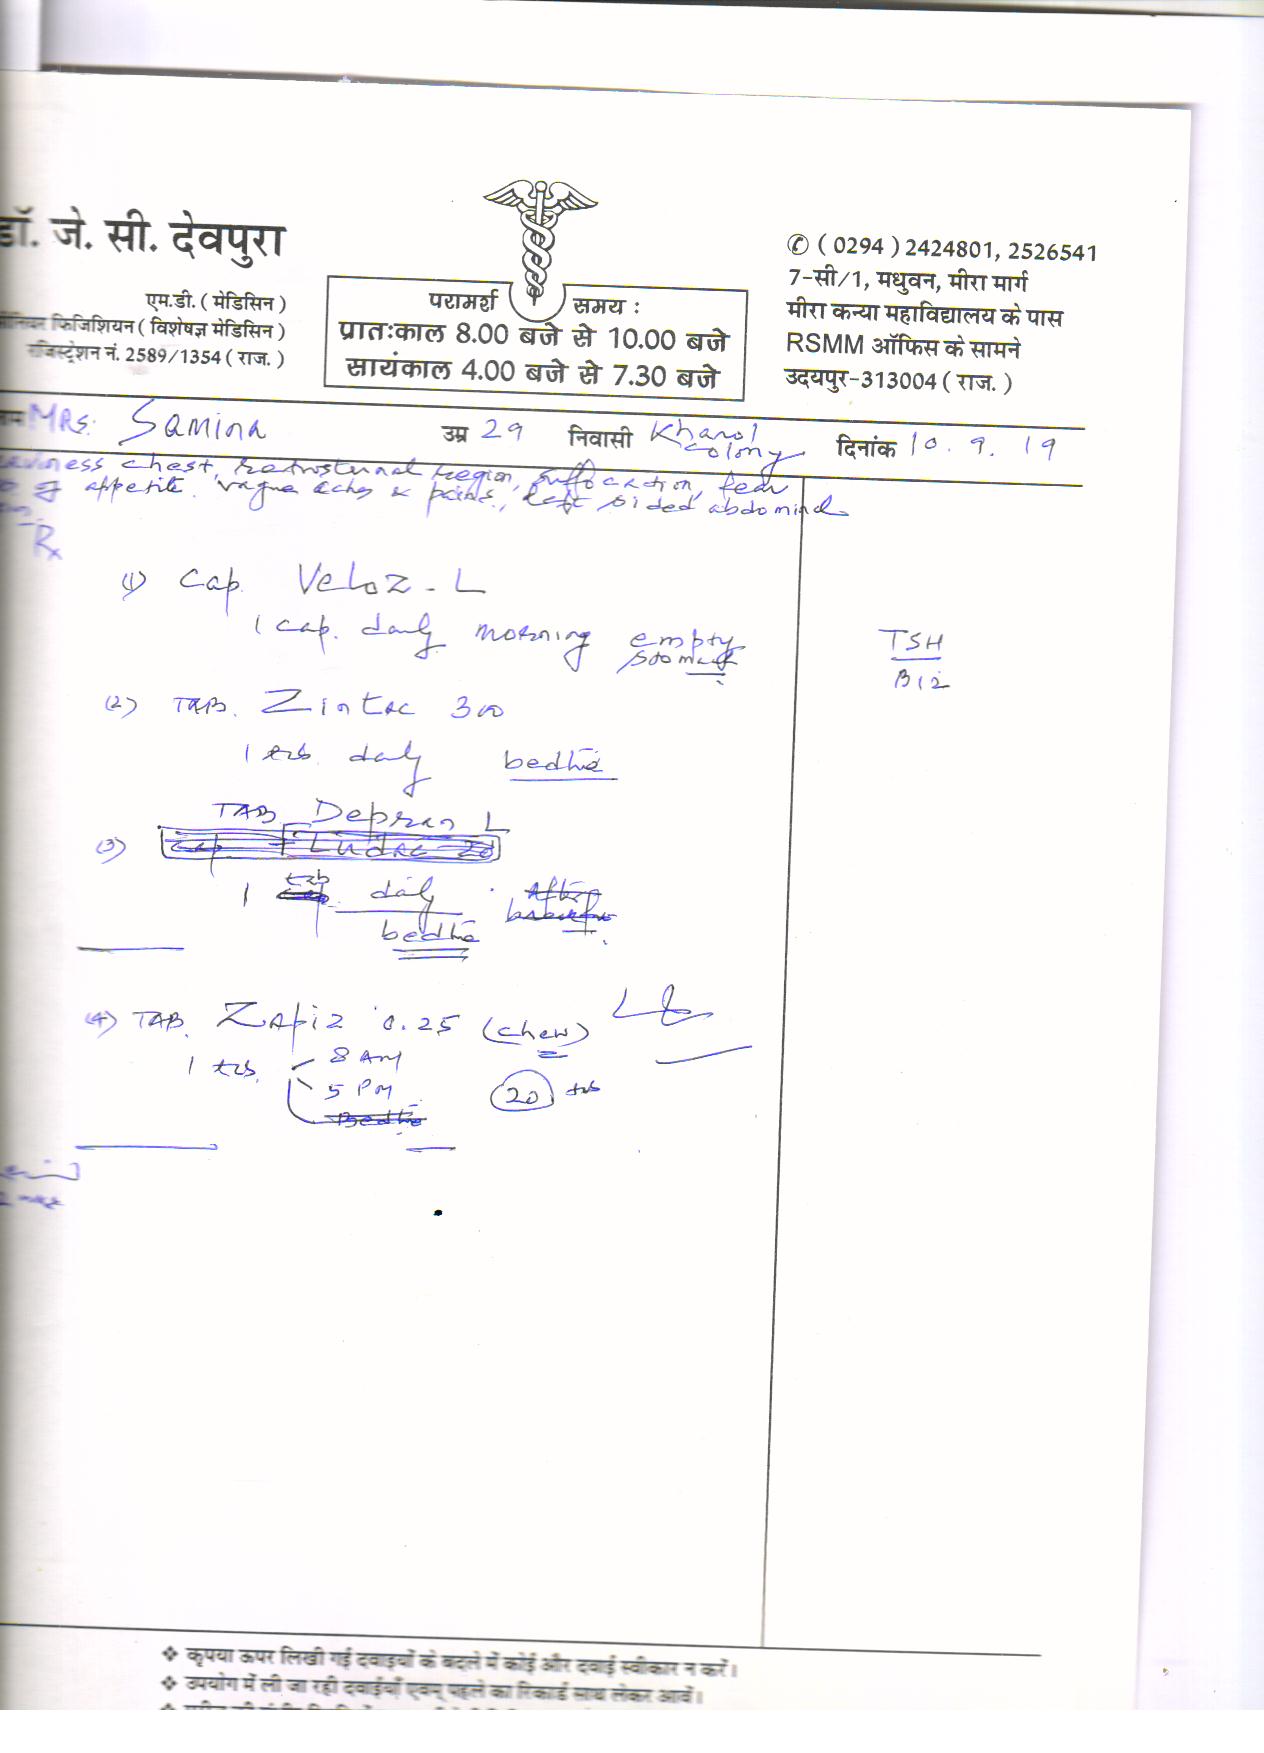 डॉ. जे. सी. देवपुरा
एम.डी. ( मेडिसिन )
सीनियर फिजिशियन ( विशेषज्ञ मेडिसिन )
रजिस्ट्रेशन नं. 2589/1354 ( राज. )
परामर्श समय :
प्रातःकाल 8.00 बजे से 10.00 बजे
सायंकाल 4.00 बजे से 7.30 बजे
✆ ( 0294 ) 2424801, 2526541
7-सी/1, मधुवन, मीरा मार्ग
मीरा कन्या महाविद्यालय के पास
RSMM ऑफिस के सामने
उदयपुर-313004 ( राज. )
नाम MRS. Samina उम्र 29 निवासी Kharol colony दिनांक 10.9.19
chest, retrosternal region, suffocation, fear
of appetite. vague aches & pains, left sided abdominal
Rx
(1) Cap. Veloz-L
1 cap. daily morning empty stomach
TSH
B12
(2) TAB. Zintac 300
1 tab. daily bedtime
TAB. Depran L
(3) Cap Fludac 20
1 tab daily After breakfast
bedtime
(4) TAB. Zapiz 0.25 (chew)
1 tab. 8 AM
5 PM 20 tab
Bedtime
❖ कृपया ऊपर लिखी गई दवाइयों के बदले में कोई और दवाई स्वीकार न करें।
❖ उपयोग में ली जा रही दवाईयाँ एवम् पहले का रिकार्ड साथ लेकर आवें।